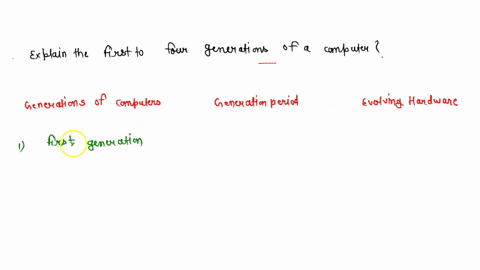 Explain the first to four generations of a computer?
Generations of computers Generation period Evolving Hardware
1) first generation